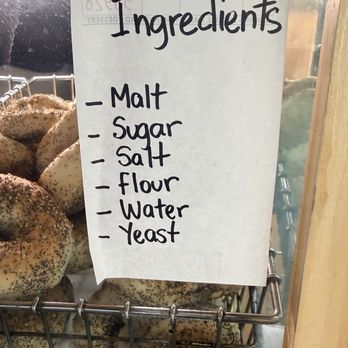 Ingredients
- Malt
- Sugar
- Salt
- Flour
- Water
- Yeast